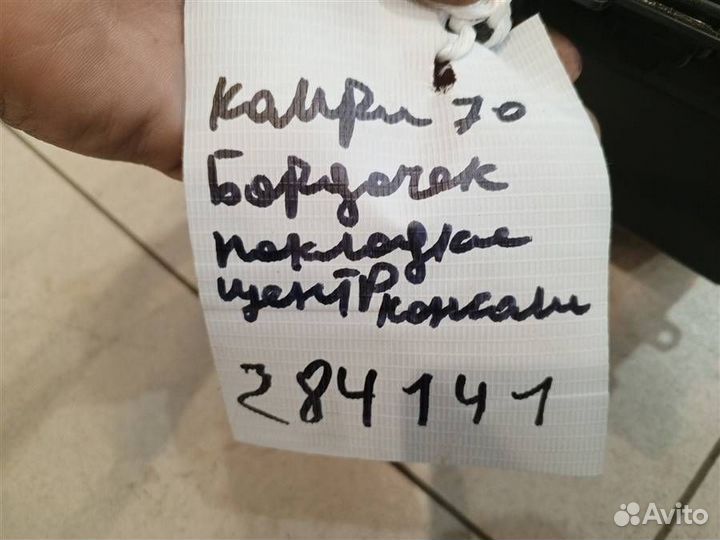 Камри 70
Бордочек
покладка
центр консали
284141
Avito